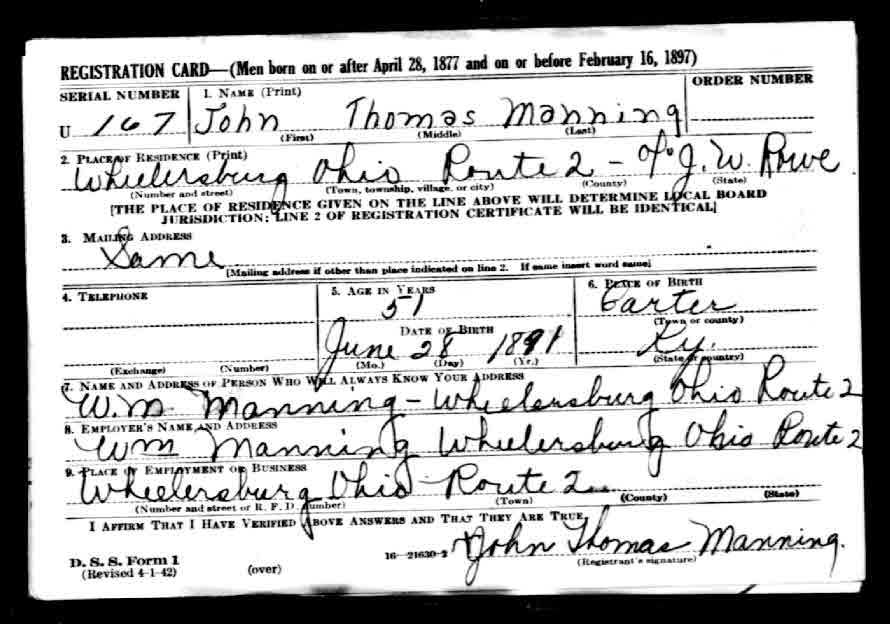 REGISTRATION CARD—(Men born on or after April 28, 1877 and on or before February 16, 1897)
SERIAL NUMBER 1. NAME (Print) ORDER NUMBER
U 167 John Thomas Manning
(First) (Middle) (Last)
2. PLACE OF RESIDENCE (Print)
Wheelersburg Ohio Route 2 - c/o J. W. Rowe
(Number and street) (Town, township, village, or city) (County) (State)
[THE PLACE OF RESIDENCE GIVEN ON THE LINE ABOVE WILL DETERMINE LOCAL BOARD
JURISDICTION; LINE 2 OF REGISTRATION CERTIFICATE WILL BE IDENTICAL]
3. MAILING ADDRESS
Same
[Mailing address if other than place indicated on line 2. If same insert word same]
4. TELEPHONE 5. AGE IN YEARS 6. PLACE OF BIRTH
51 Carter
(Town or county)
DATE OF BIRTH
June 28 1891 Ky.
(Exchange) (Number) (Mo.) (Day) (Yr.) (State or country)
7. NAME AND ADDRESS OF PERSON WHO WILL ALWAYS KNOW YOUR ADDRESS
W.m Manning - Wheelersburg Ohio Route 2
8. EMPLOYER'S NAME AND ADDRESS
Wm Manning Wheelersburg Ohio Route 2
9. PLACE OF EMPLOYMENT OR BUSINESS
Wheelersburg Ohio Route 2
(Number and street or R. F. D. number) (Town) (County) (State)
I AFFIRM THAT I HAVE VERIFIED ABOVE ANSWERS AND THAT THEY ARE TRUE.
D. S. S. Form 1 16—21630-2 John Thomas Manning.
(Revised 4-1-42) (over) (Registrant's signature)